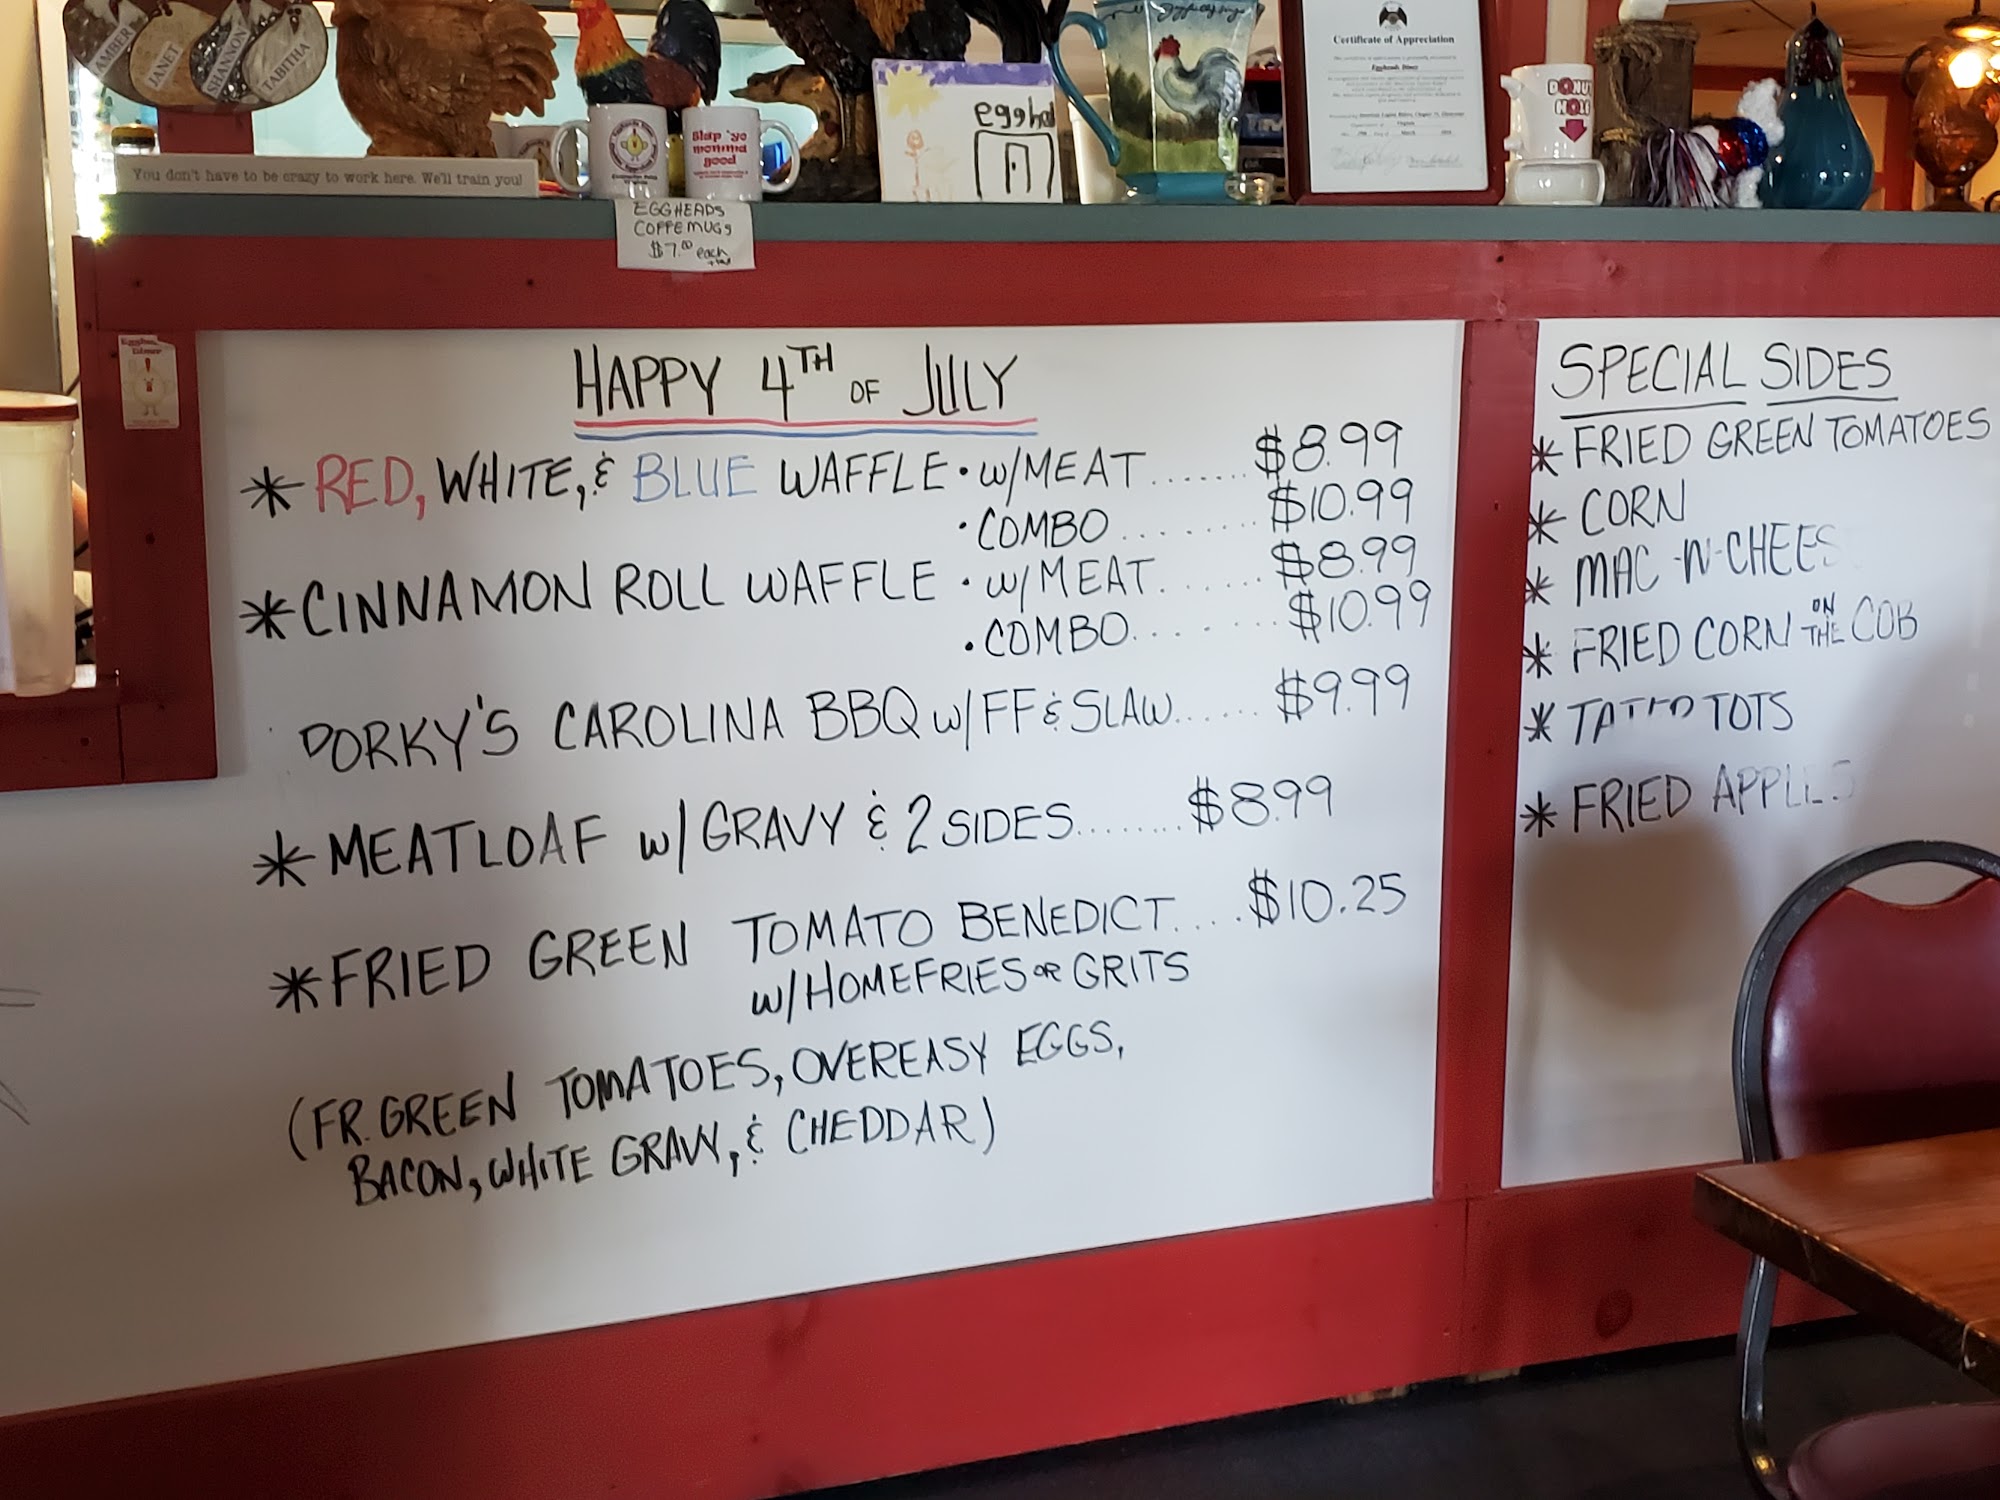 AMBER
JANET
SHANNON
TABITHA
You don't have to be crazy to work here. We'll train you!
Slap 'yo
momma
good
egghe
Certificate of Appreciation
Eggheads Diner
DONUT
HOLE
EGGHEADS
COFFE MUGS
$7.00 each
+ tax
HAPPY 4TH OF JULY
* RED, WHITE, & BLUE WAFFLE • w/MEAT....... $8.99
• COMBO.......... $10.99
* CINNAMON ROLL WAFFLE • w/MEAT....... $8.99
• COMBO........ $10.99
PORKY'S CAROLINA BBQ w/FF & SLAW...... $9.99
* MEATLOAF w/ GRAVY & 2 SIDES........ $8.99
* FRIED GREEN TOMATO BENEDICT.... $10.25
w/HOMEFRIES OR GRITS
(FR. GREEN TOMATOES, OVEREASY EGGS,
BACON, WHITE GRAVY, & CHEDDAR)
SPECIAL SIDES
* FRIED GREEN TOMATOES
* CORN
* MAC-N-CHEES
* FRIED CORN ON THE COB
* TATER TOTS
* FRIED APPLES